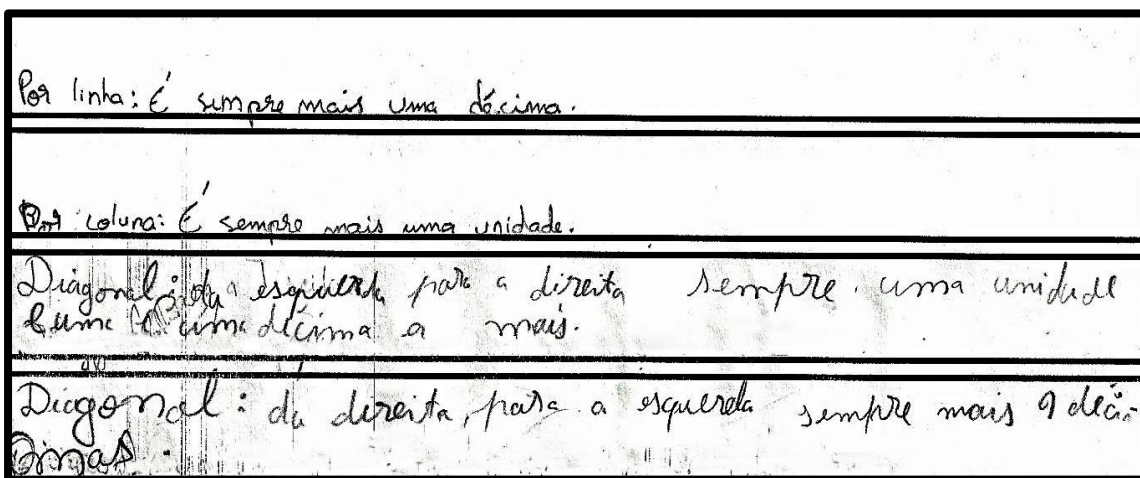 Por linha: É sempre mais uma décima.
Por coluna: É sempre mais uma unidade.
Diagonal: da esquerda para a direita sempre uma unidade
e uma décima a mais.
Diagonal: da direita, para a esquerda sempre mais 9 déci-
mas